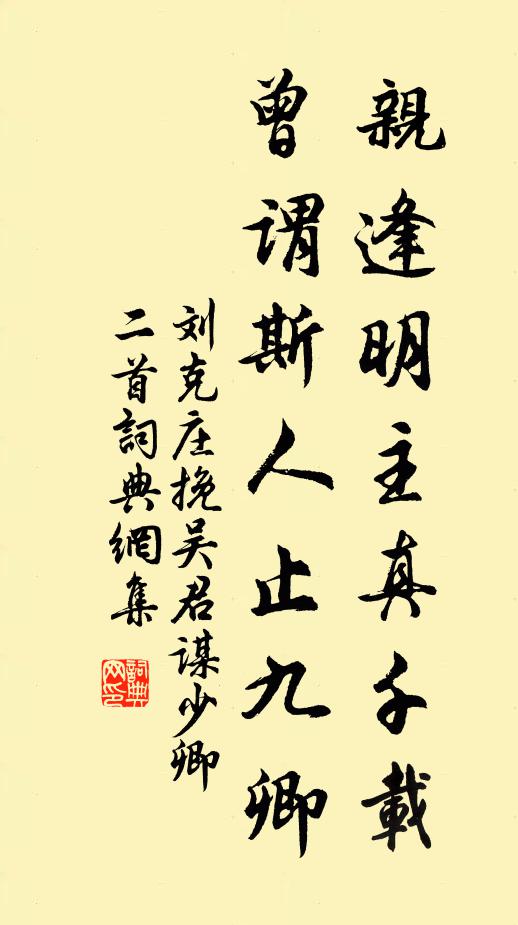 親逢明主真千載
曾謂斯人止九卿
刘克庄挽吴君谋少卿
二首詞典網集
詞典
网印